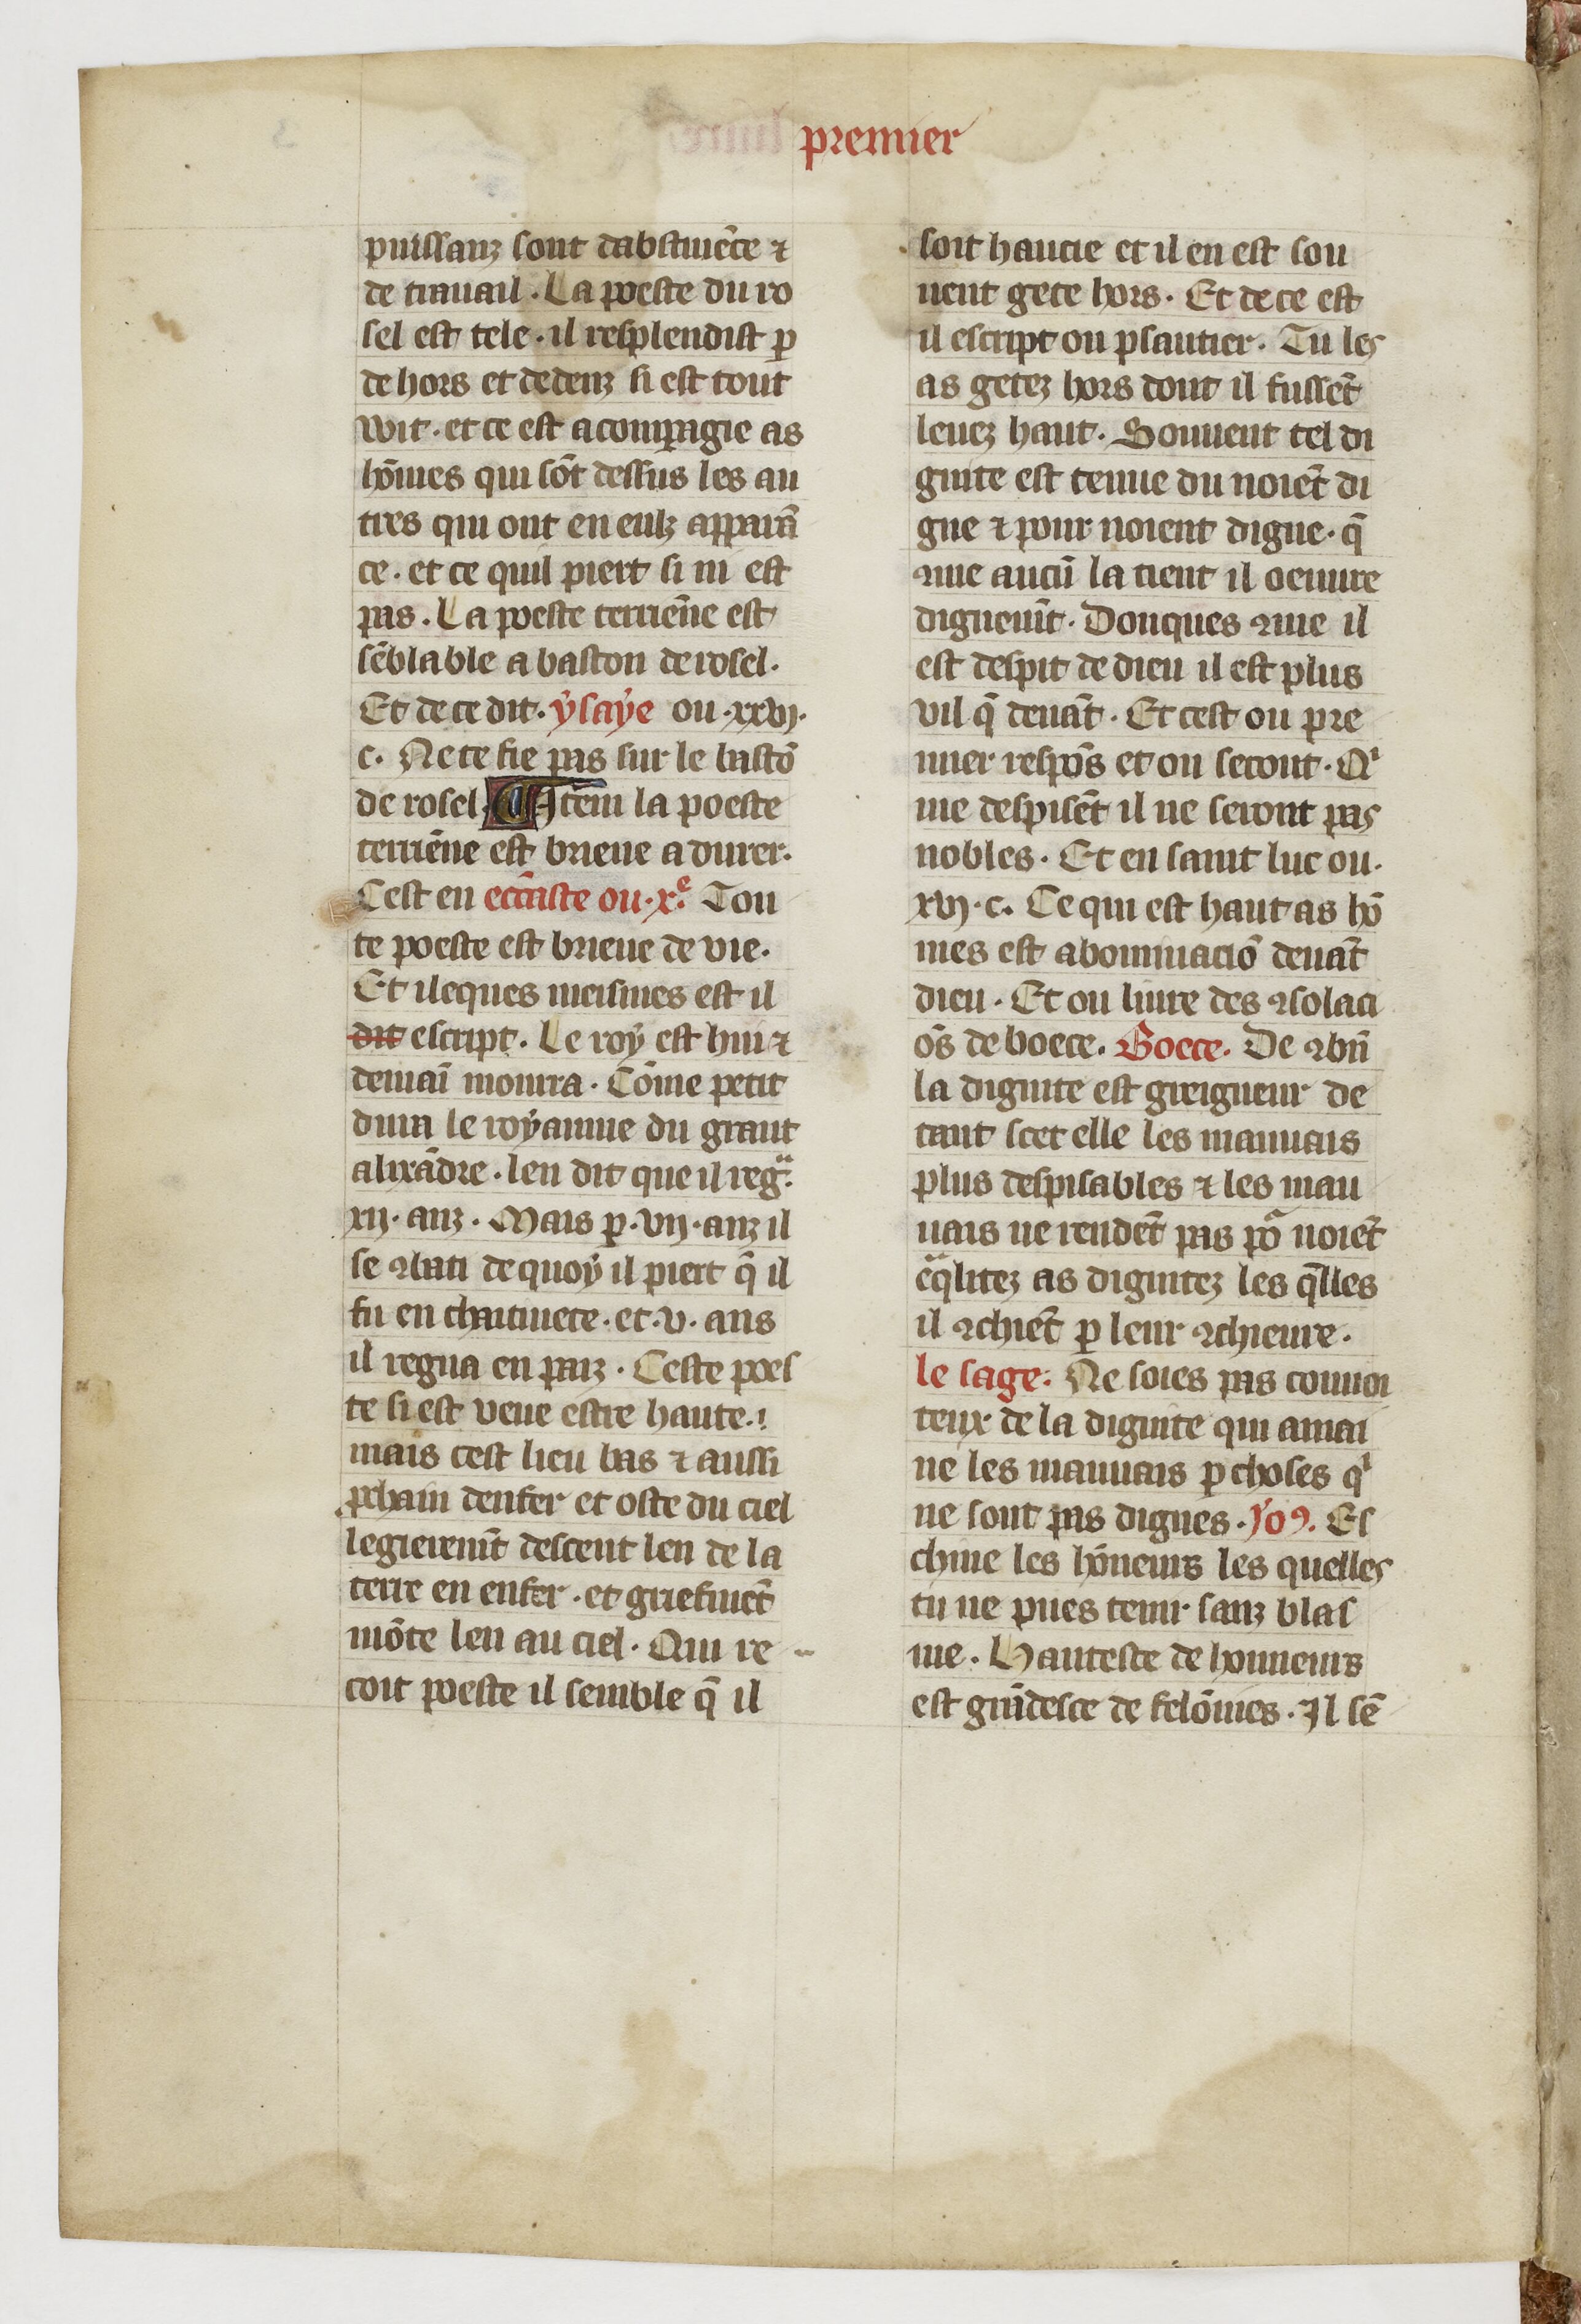 premier
puissanz sont dabstinēce ⁊
de trauail. La poeste du ro
sel est tele. il resplendist ꝑ
de hors et dedenz si est tout
wit. et ce est acompagie as
hōmes qui sōt dessus les au
tres qui ont en eulz apparā
ce. et ce quil piert si ni est
pas. La poeste terriēne est
sēblable a baston de rosel.
Et de ce dit. ysaye ou .xxvj.
c. Ne te fie pas sur le bastō
de rosel. Item la poeste
terriēne est brieue a durer.
Cest en ecc̄iaste ou .xͤ. Tou
te poeste est brieue de vie.
Et ileques meismes est il
dit escript. Le roy est hui ⁊
demaī mourra. Cōme petit
dura le royaume du grant
alixādre. len dit que il regᵃ.
xij. anz. Mais ꝑ .vij. anz il
se ꝯbati de quoy il piert q̄ il
fu en chaitiuete. et .v. ans
il regna en paiz. Ceste poes
te si est veue estre haute.
mais cest lieu bas ⁊ aussi
ꝓchain denfer et oste du ciel
legierem̄t descent len de la
terre en enfer. et griefmēt
mōte len au ciel. Qui re
coit poeste il semble q̄ il
soit haucie et il en est sou
uent gete hors. Et de ce est
il escript ou psautier. Tu les
as getez hors dont il fussēt
leuez haut. Souuent tel di
gnite est tenue du noiēt di
gne ⁊ pour noient digne. q̄
ꝯme aucū la tient il oeuure
dignem̄t. Donques ꝯme il
est despit de dieu il est plus
vil q̄ deuāt. Et cest ou pre
mier respōs et ou secont. Qⁱ
me despisēt il ne seront pas
nobles. Et en saint luc ou.
xvj. c. Ce qui est haut as hō
mes est abominaciō deuāt
dieu. Et ou liure des ꝯsolaci
ōs de boece. Boece. De ꝯbn̄
la dignite est greigneur de
tant scet elle les mauuais
plus despisables ⁊ les mau
uais ne rendēt pas po᷑ noiēt
eqᵃlitez as dignitez les q̄lles
il ꝯchiēt ꝑ leur ꝯchieure.
le sage. Ne soies pas conuoi
teux de la dignite qui amai
ne les mauuais ꝑ choses qⁱ
ne sont pas dignes. yoꝯ. Es
chiue les hōneurs les quelles
tu ne pues tenir sanz blas
me. Hautesce de honneurs
est grādesce de felōnies. Il sē